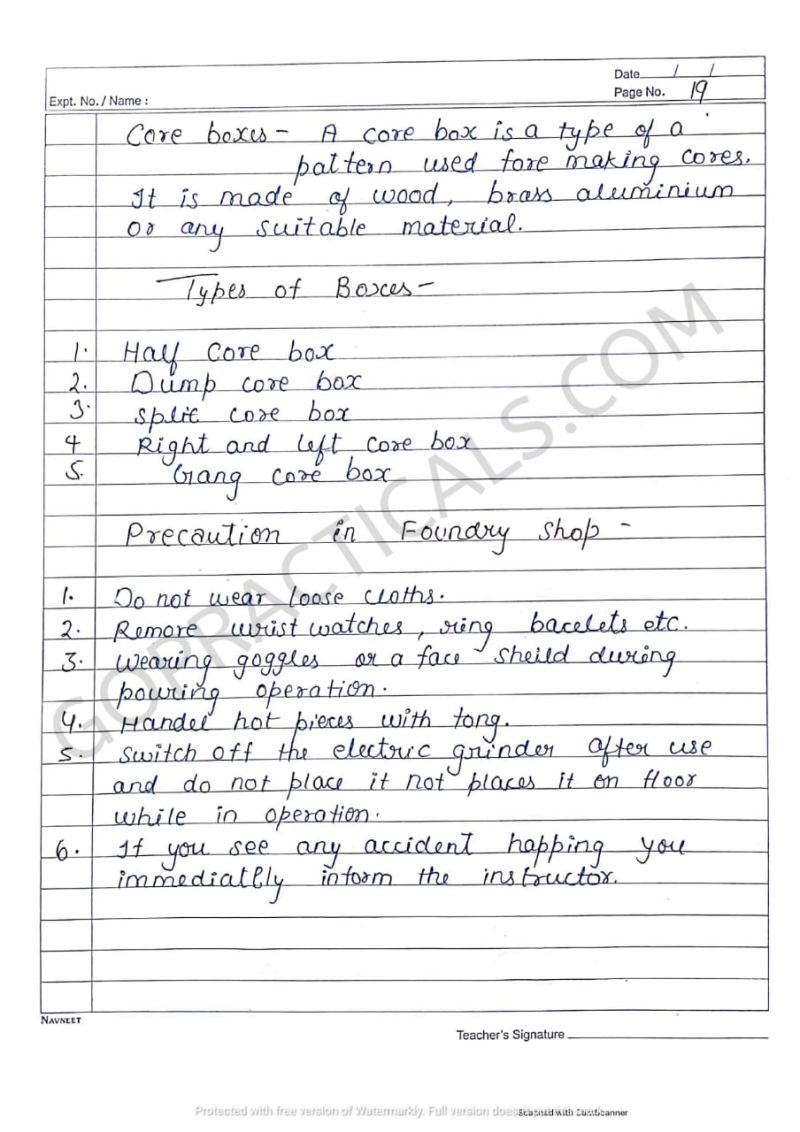 Date / /
Expt. No. / Name :
Page No. 19
Core boxes - A core box is a type of a
pattern used fore making cores.
It is made of wood, brass aluminium
or any suitable material.
Types of Boxes -
1. Half core box
2. Dump core box
3. split core box
4 Right and left core box
5. Gang core box
Precaution in Foundry shop -
1. Do not wear loose cloths.
2. Remore wrist watches, ring bacelets etc.
3. Wearing goggles or a face sheild during
pouring operation.
4. Handel hot pieces with tong.
5. Switch off the electric grinder after use
and do not place it not places it on floor
while in operation.
6. If you see any accident happing you
immediatlly inform the instructor.
NAVNEET
Teacher's Signature
GOPRACTICALS.COM
Protected with free version of Watermarkly. Full version does
Scanned with CamScanner